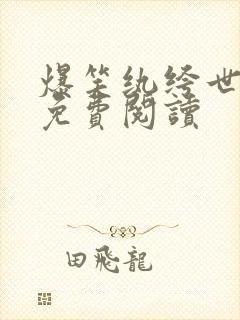 爆笑紈絝世
免費閱讀
田飛龍